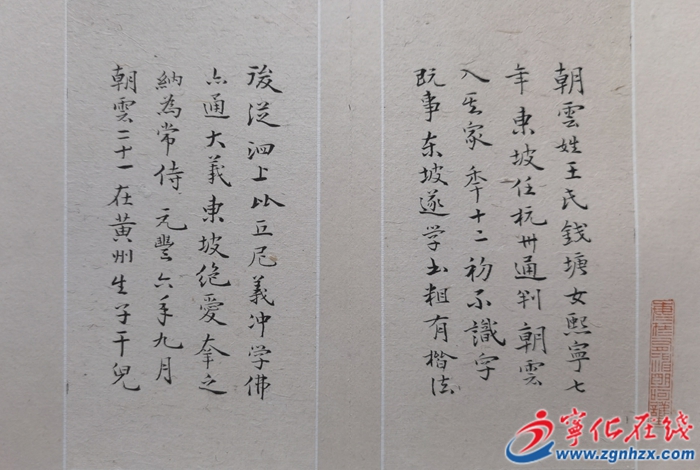 朝雲姓王氏錢塘女熙寧七
年東坡任杭州通判朝雲
入其家 秊十二初不識字
既事东坡遂学书粗有楷法
後従泗上比丘尼義沖学佛
亦通大義東坡绝愛幸之
納為常侍 元豐六年九月
朝雲二十一在黄州生子干兒
寧化在线
www.zgnhzx.com